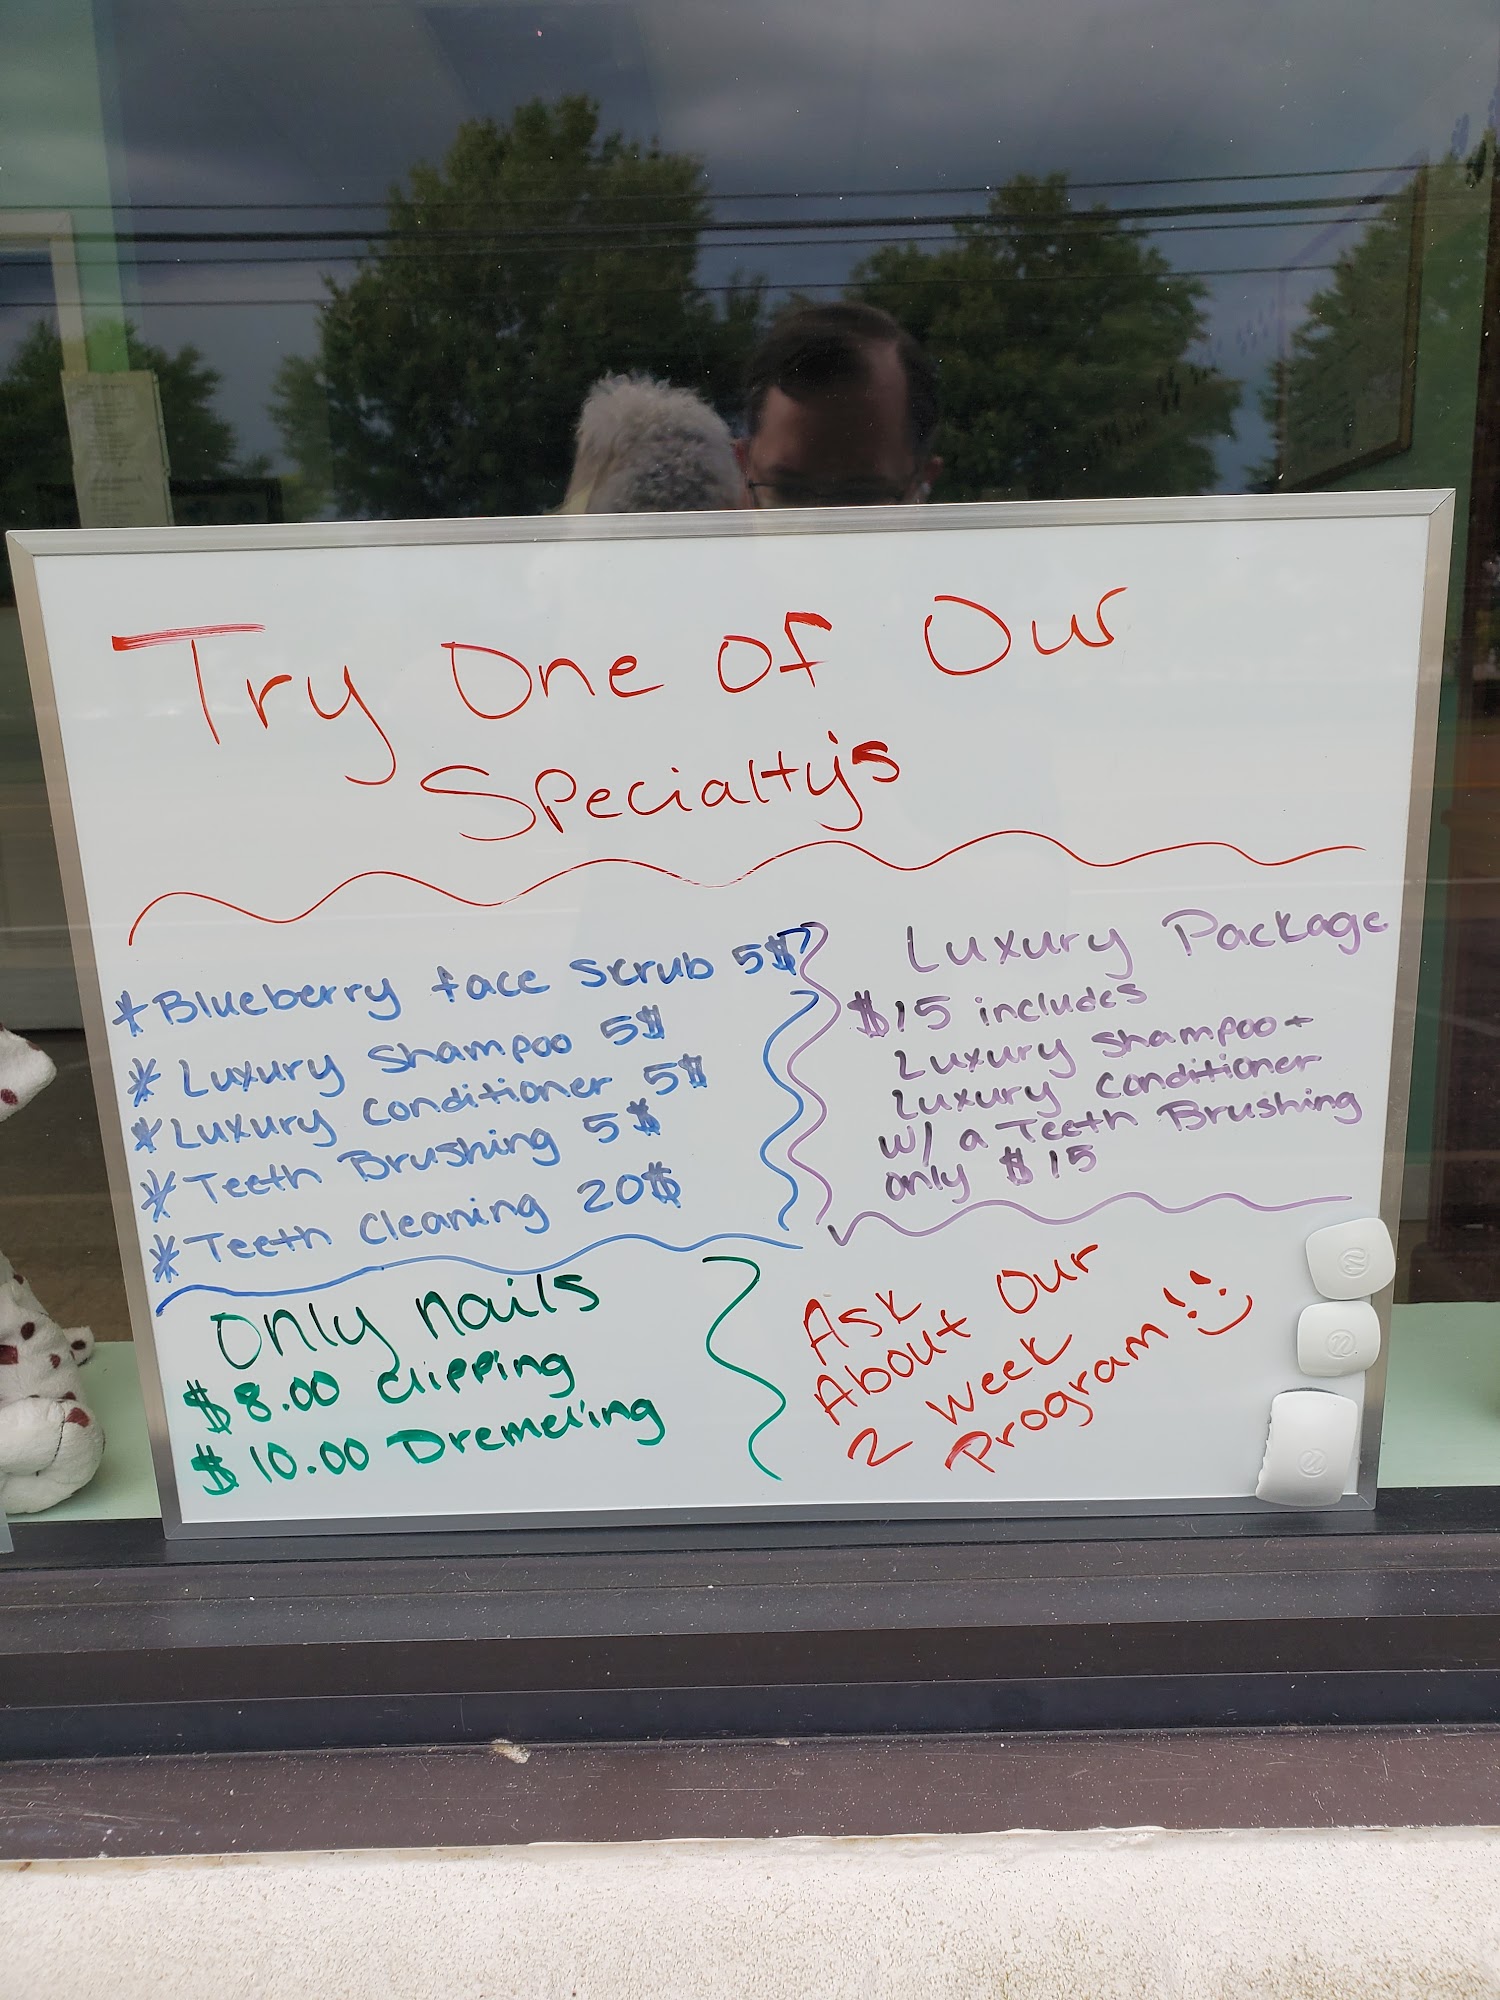 Try One Of Our
Specialty's
*Blueberry face Scrub 5$
*Luxury Shampoo 5$
*Luxury Conditioner 5$
*Teeth Brushing 5$
*Teeth Cleaning 20$
Luxury Package
$15 includes
Luxury Shampoo +
Luxury Conditioner
w/ a Teeth Brushing
only $15
Only nails
$8.00 Clipping
$10.00 Dremeling
Ask
About Our
2 week
Program! :)